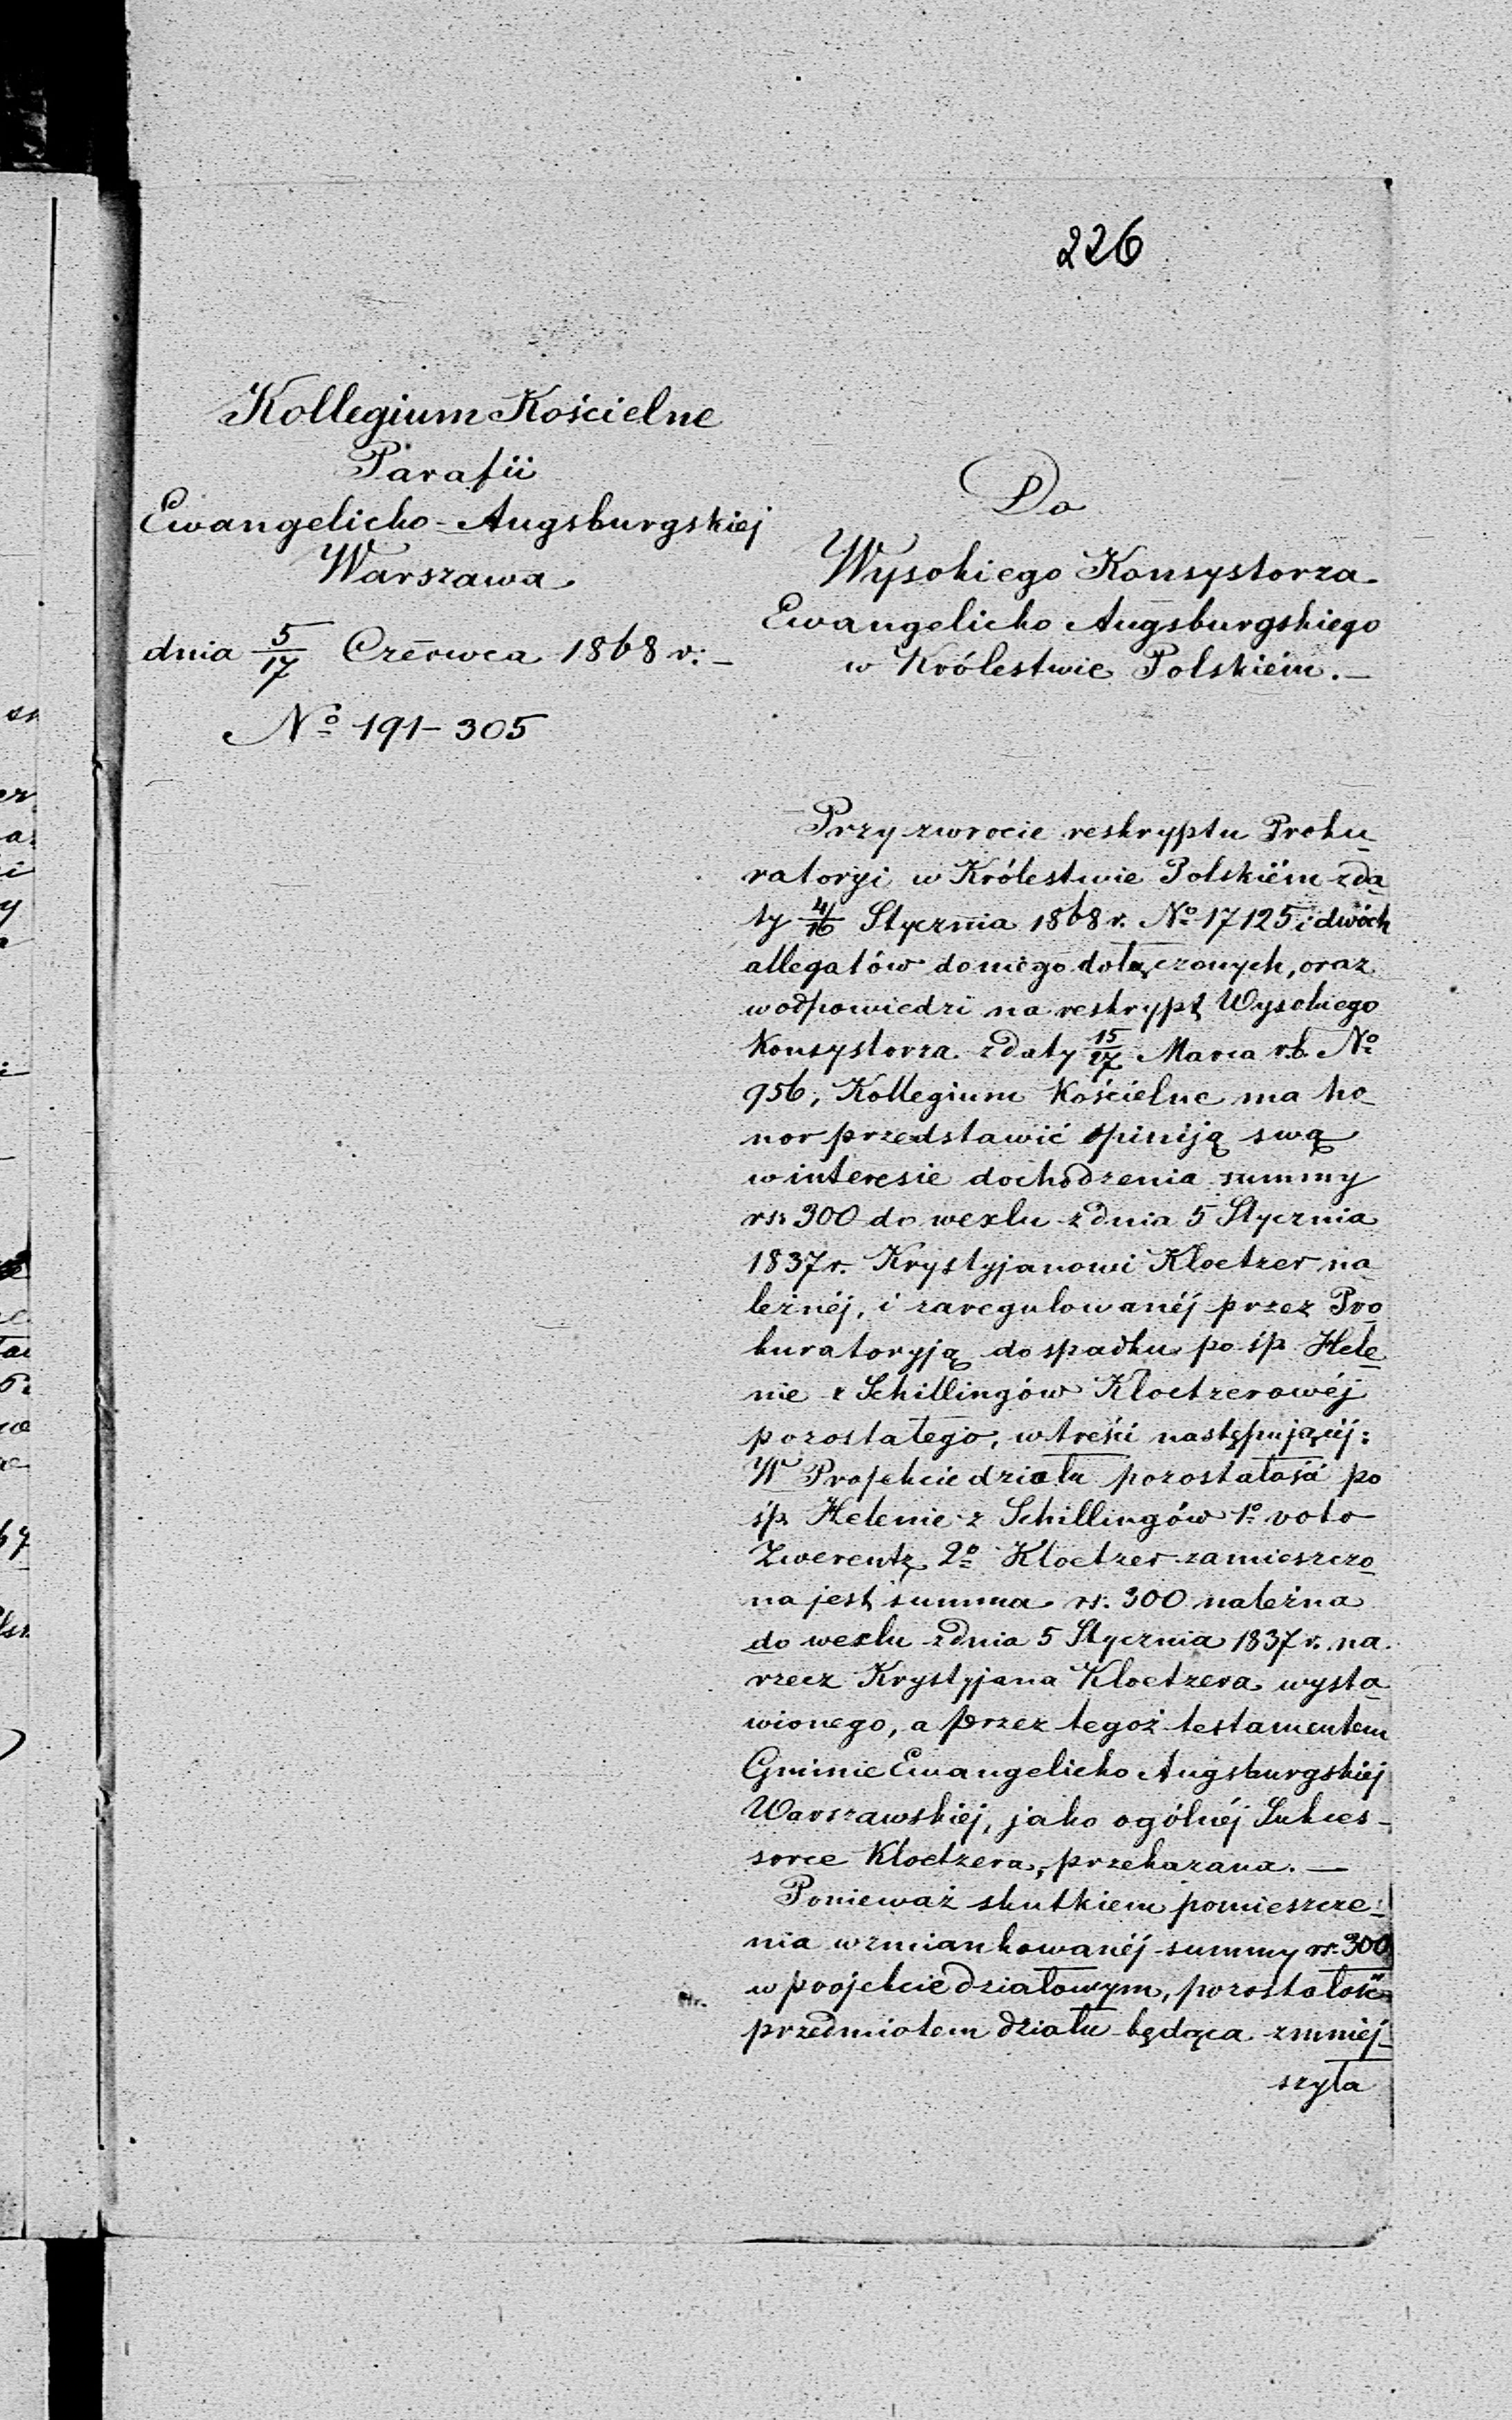 226
Kollegium Kościelne
Parafii
Ewangelicko-Augsburgskiej
Warszawa
dnia 5/17 Czerwca 1868 r:
No 191-305
Do
Wysokiego Konsystorza
Ewangelicko Augsburgskiego
w Królestwie Polskiém.
Przy zwrocie reskryptu Proku-
ratoryi w Królestwie Polskiém z da
ty 4/16 Stycznia 1868 r. No 17125 i dwóch
allegatów do niego dołączonych, oraz
w odpowiedzi na reskrypt Wysokiego
Konsystorza z daty 15/27 Marca r.b. No
956, Kollegium Kościelne ma ho-
nor przedstawić opiniją swą
w interesie dochodzenia summy
rs. 300 do wexlu z dnia 5 Stycznia
1837 r. Krystyjanowi Kloetzer na
leżnéj, i zaregulowanéj przez Pro
kuratoryją do spadku po śp. Hele
nie z Schillingów Kloetzerowéj
pozostałego, w treści następującéj:
W Projekcie działu pozostałości po
śp. Helenie z Schillingów 1o voto
Zwerentz 2o Kloetzer zamieszczo
na jest summa rs. 300 należna
do wexlu z dnia 5 Stycznia 1837 r. na
rzecz Krystyjana Kloetzera wysta
wionego, a przez tegoż testamentem
Gminie Ewangelicko Augsburgskiej
Warszawskiej, jako ogólnéj Sukces-
sorce Kloetzera, przekazana. —
Ponieważ skutkiem pomieszcze-
nia wzmiankowanéj summy rs. 300
w projekcie działowym, pozostałość
przedmiotem działu będąca zmniej-
szyła